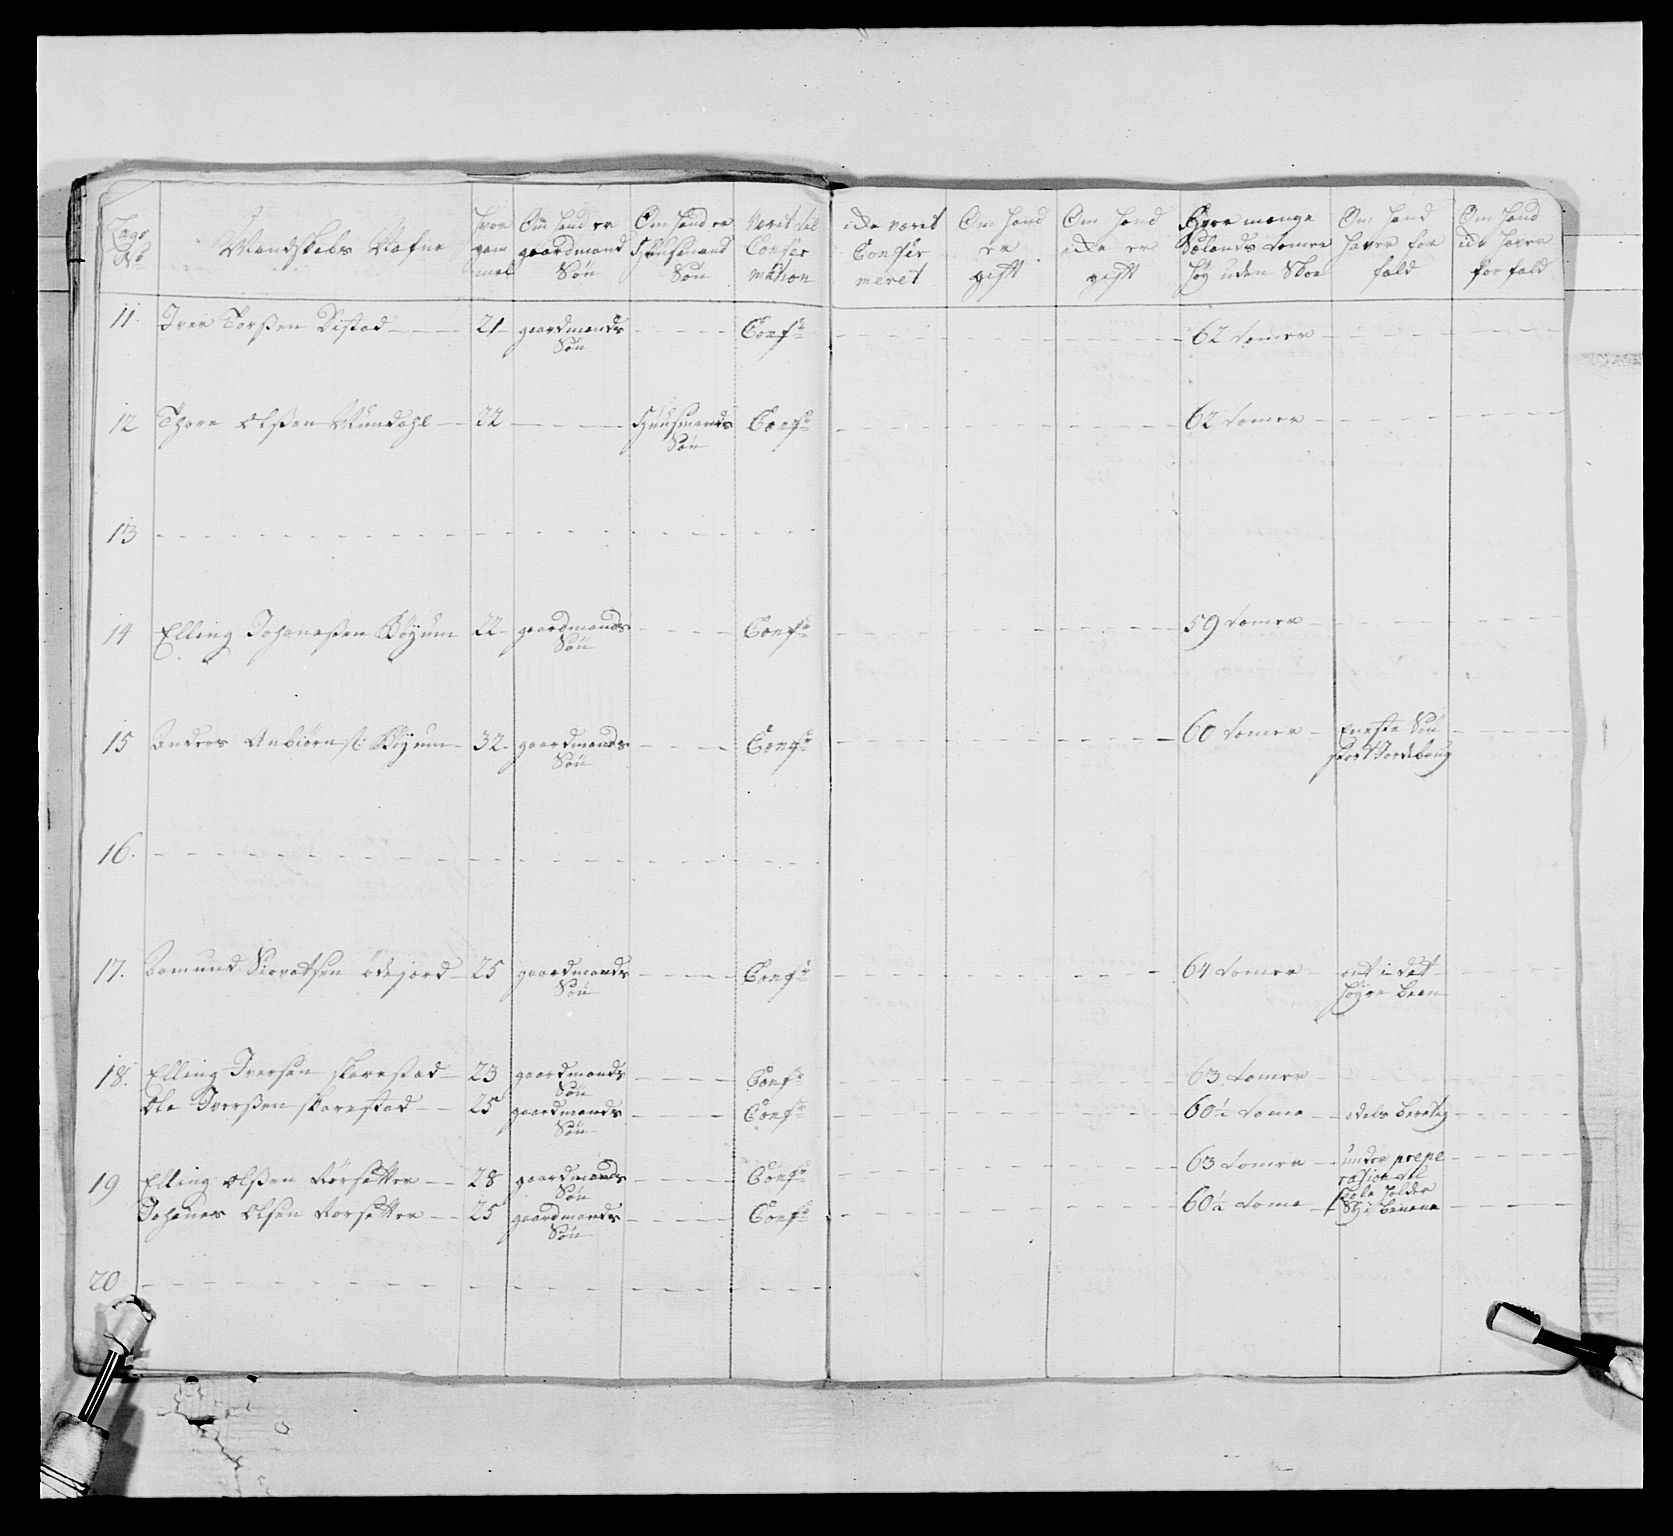 Lægs No
Mandskabs Nafne
hvor gam mel
Om hand er gaardmand Søn
Om hand er Huusmand Søn
Været til Confir mation
icke været Confir meret
Om hand er gift
Om hand icke er gift
Hvor mange Sælands tomer høy uden Skoe
Om hand haver for fald
Om hand icke haver for fald
11. Iver Torßen Distad 21 gaardmands Søn Conf 62 tomer
12 Thore Olßen Mundahl 22 Huusmands Søn Conf 62 tomer
13
14 Elling Johaneßen Bøyum 22 gaardmands Søn Conf 59 tomer
15 Anders Anbiørns: Bøyum 32 gaardmands Søn Conf 60 tomer Eneste Søn
16.
17. Aamund Siovatsen ødegord 25 gaardmands Søn Conf 64 tomer ont i det høyre been
18. Elling Iversøn skarestad 23 gaardmands Søn Conf 63 tomer
Ole Iverßen skarestad 25 gaardmands Søn Conf 60½ tome odels beretig
19 Elling Olßen Rørsetter 28 gaardmands Søn Conf 63 tomer under prepe ration til
Johanes Olsen Rorsetter 25 gaardmands Søn Conf 60½ tome i benene
20